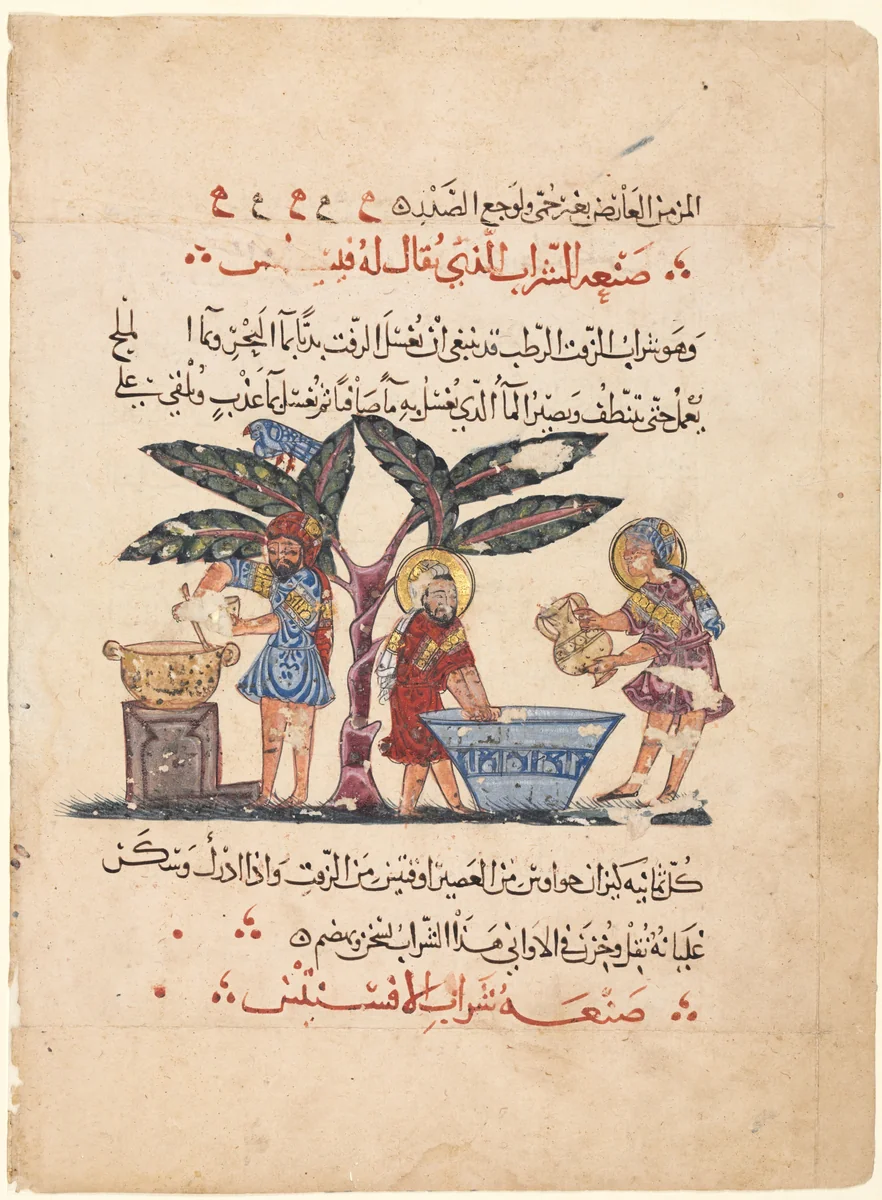 المزمن العارض بغير حمى ولوجع الصدر ه ه ه ه ه
صنعه الشراب الذي يقال له
وهو شراب الزفت الرطب قد ينبغي ان يغسل الزفت بديا بما البحر وبما الملح
يعمل حتى يتنظف ويصير الما الذي يغسل به ما صافيا ثم يغسل بما عذب ويلقي على
كل ثمانيه كيزان من العصير اوقيتين من الزفت واذا ادرك وسكن
غليانه نقل وخزن في الاواني هذا الشراب يسخن ويهضم ه
صنعه شراب الافسنتين